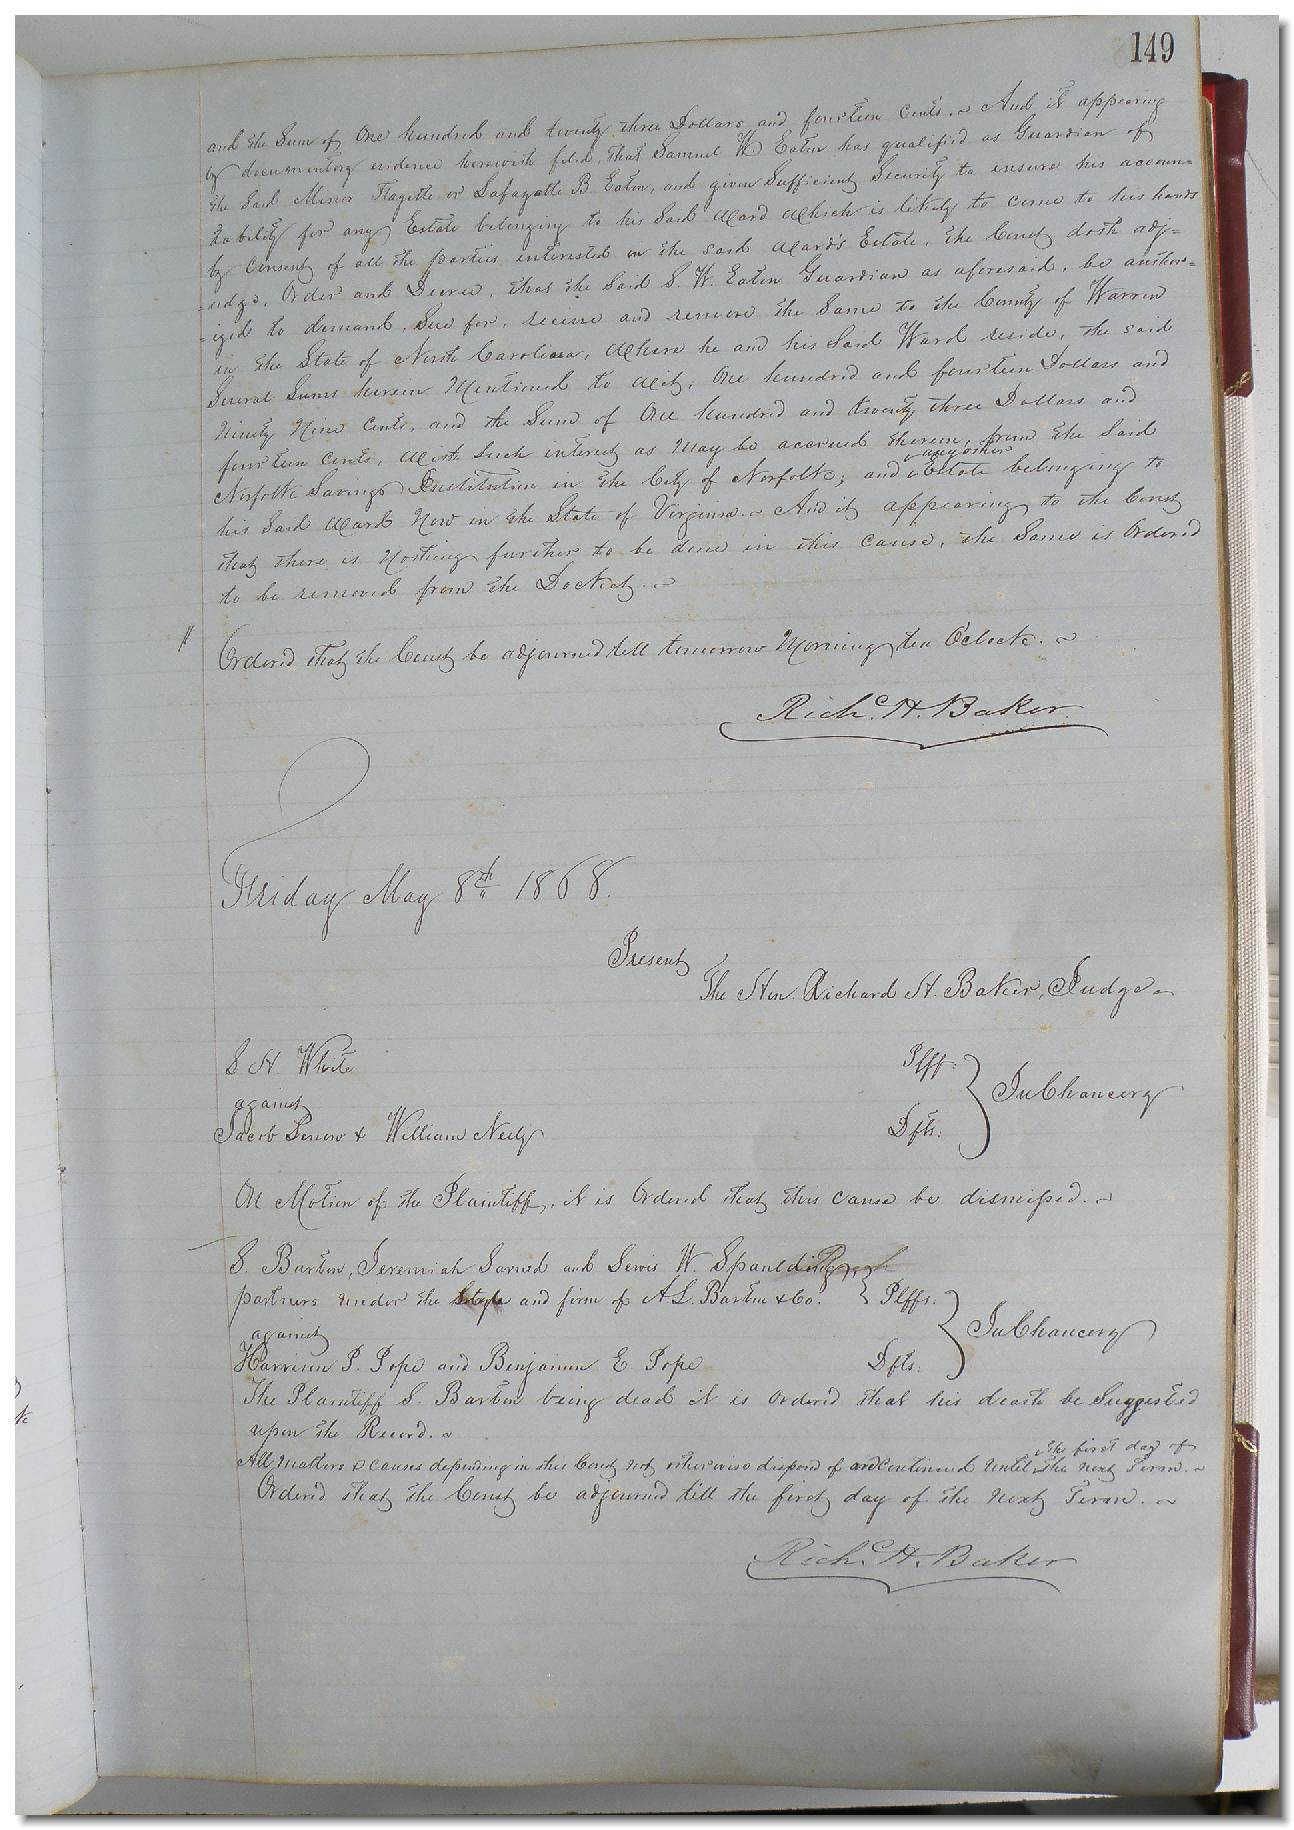 149
and the Sum of One hundred and twenty three Dollars and fourteen Cents. And it appearing
by documentary evidence herewith filed, that Samuel W Eaton has qualified as Guardian of
the Said Minor Flayette or Lafayette B Eaton, and given Sufficient Security to ensure his accoun=
tability for any Estate belonging to his Said Ward which is likely to come to his hands
by Consent of all the parties interested in the said Ward's Estate. The Court doth adj=
=udge, Order and Decree, that the Said S. W. Eaton Guardian as aforesaid, be author=
=ized to demand, Sue for, receive and remove the Same to the County of Warren
in the State of North Carolina, where he and his Said Ward reside, the said
Several Sums herein Mentioned to wit, One hundred and fourteen Dollars and
Ninety Nine Cents, and the Sum of One hundred and twenty three Dollars and
fourteen Cents, with Such interest as May be accrued thereon, from the Said
Norfolk Savings Institution in the City of Norfolk; and any other Estate belonging to
his Said Ward Now in the State of Virginia. And it appearing to the Court
that there is Nothing further to be done in this Cause, the Same is Ordered
to be removed from the Docket.
Ordered that the Court be adjourned till tomorrow Morning ten O'clock.
Richd. H. Baker
Friday May 8th 1868.
Present
The Hon. Richard H. Baker, Judge
S H White Plff.
against In Chancery
Jacob Senow & William Neely Dfts.
On Motion of the Plaintiff, it is Ordered that this cause be dismissed.
S. Barton, Jeremiah and Lewis W. Spaulding
partners under the Style and firm of A L. Barton & Co. Plffs.
against In Chancery
Harrison P. Pope and Benjamin E. Pope Dfts.
The Plaintiff S. Barton being dead it is ordered that his death be Suggested
upon the Record.
All Matters & causes depending in this Court not otherwise disposed of are Continued until the first day of the next Term.
Ordered that the Court be adjourned till the first day of the next Term.
Richd. H. Baker